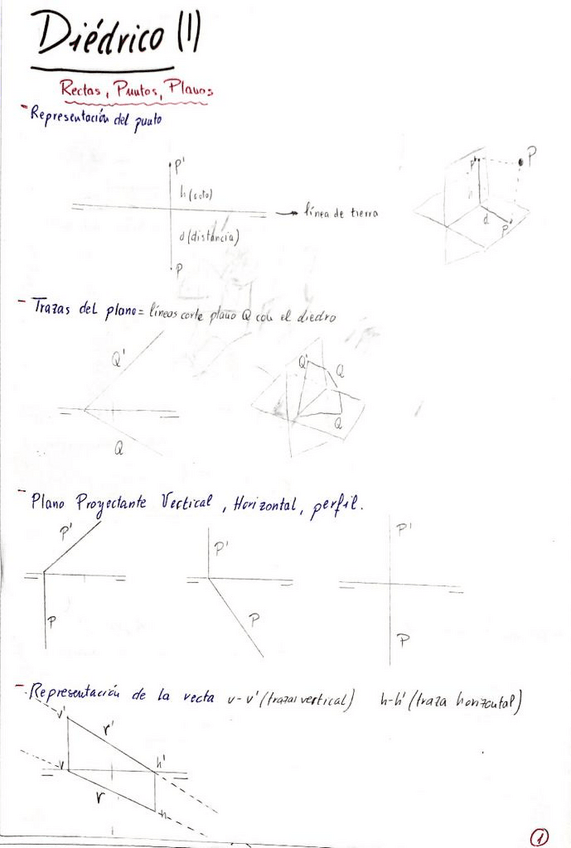 Diédrico (1)
Rectas, Puntos, Planos
- Representación del punto
P'
h (cota)
línea de tierra
d (distáncia)
P
P'
P
d
P
- Trazas del plano = líneas corte plano Q con el diedro
Q'
Q
Q'
Q
Q
- Plano Proyectante Vectical, Horizontal, perfil.
P'
P
P'
P
P'
P
- Representación de la recta v-v' (trazas vertical) h-h' (traza horizontal)
v'
r'
v
h'
r
h
1